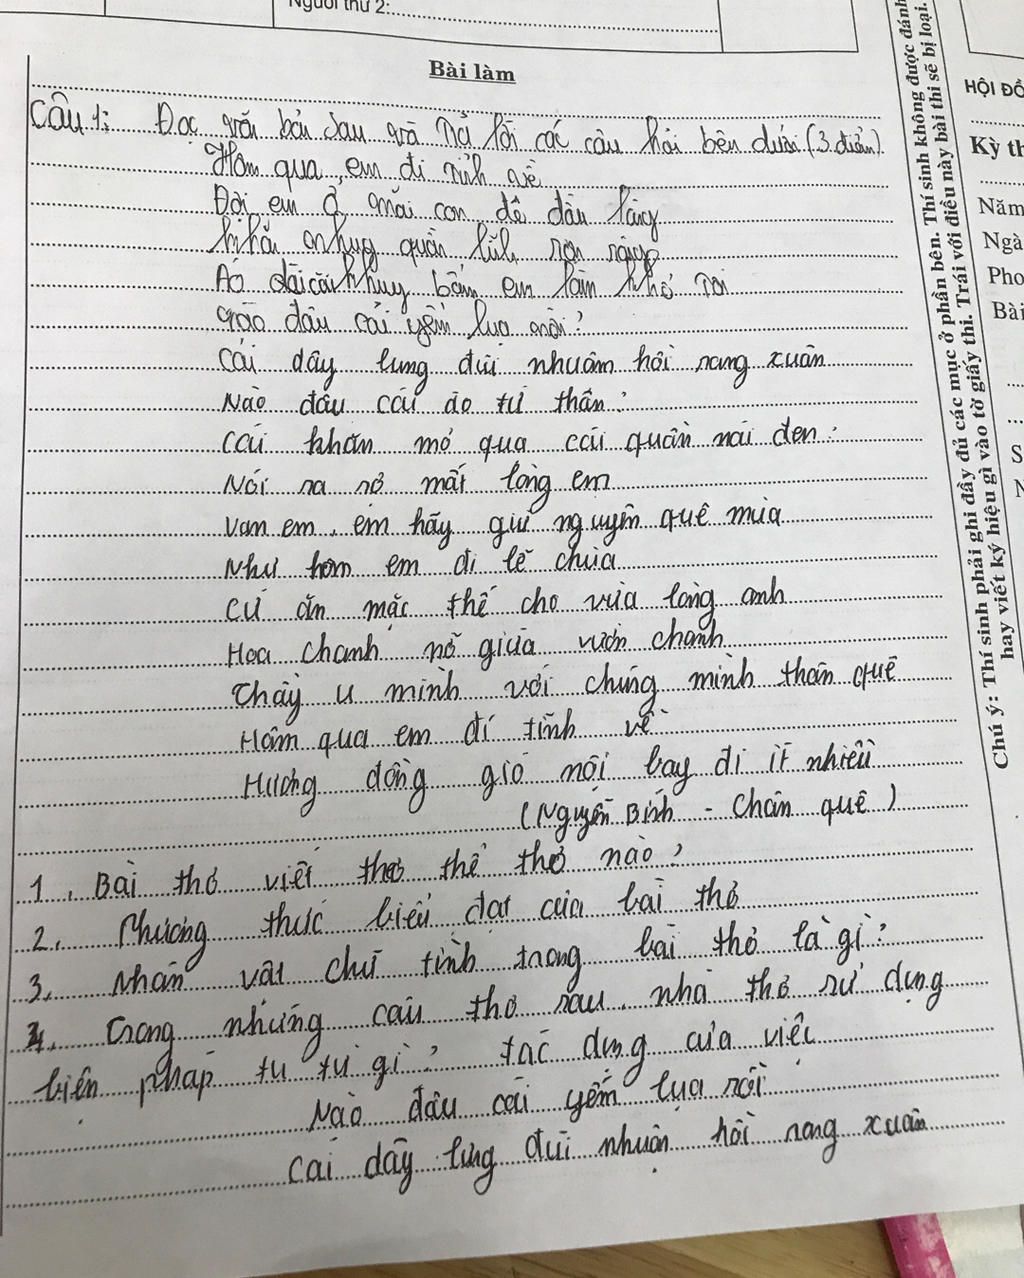 Người thứ 2:
Bài làm
Câu 1: Đọc văn bản sau và trả lời các câu hỏi bên dưới (3 điểm)
Hôm qua, em đi tỉnh về
Đợi em ở mãi con đê đầu làng
khăn nhung quần lĩnh rộn ràng
Áo dài cài khuy bấm em làm khổ tôi
nào đâu cái yếm lụa sồi?
Cái dây lưng đũi nhuộm hồi sang xuân
Nào đâu cái áo tứ thân?
Cái khăn mỏ quạ cái quần nái đen?
Nói ra sợ mất lòng em
Van em, em hãy giữ nguyên quê mùa
Như hôm em đi lễ chùa
Cứ ăn mặc thế cho vừa lòng anh
Hoa chanh nở giữa vườn chanh
Thầy u mình với chúng mình chân quê
Hôm qua em đi tỉnh về
Hương đồng gió nội bay đi ít nhiều
(Nguyễn Bính - Chân quê)
1. Bài thơ viết theo thể thơ nào?
2. Phương thức biểu đạt của bài thơ
3. Nhân vật chữ tình trong bài thơ là gì?
4. Trong những câu thơ sau, nhà thơ sử dụng
biện pháp tu từ gì? tác dụng của việc
Nào đâu cái yếm lụa sồi
Cái dây lưng đũi nhuộm hồi sang xuân
Chú ý: Thí sinh phải ghi đầy đủ các mục ở phần bên. Thí sinh không được đánh
hay viết ký hiệu gì vào tờ giấy thi. Trái với điều này bài thi sẽ bị loại.
HỘI ĐỒ
Kỳ th
Năm
Ngà
Pho
Bài
S
N